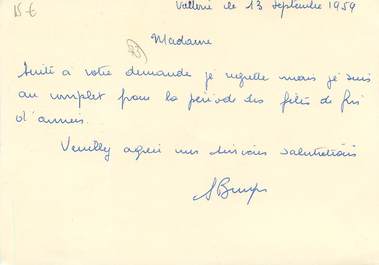 15 €
le 13 Septembre 1959
Madame
Suite à votre demande je regrette mais je suis
au complet pour la période des fêtes de fin
d'années.
Veuillez agréer mes sincères salutations